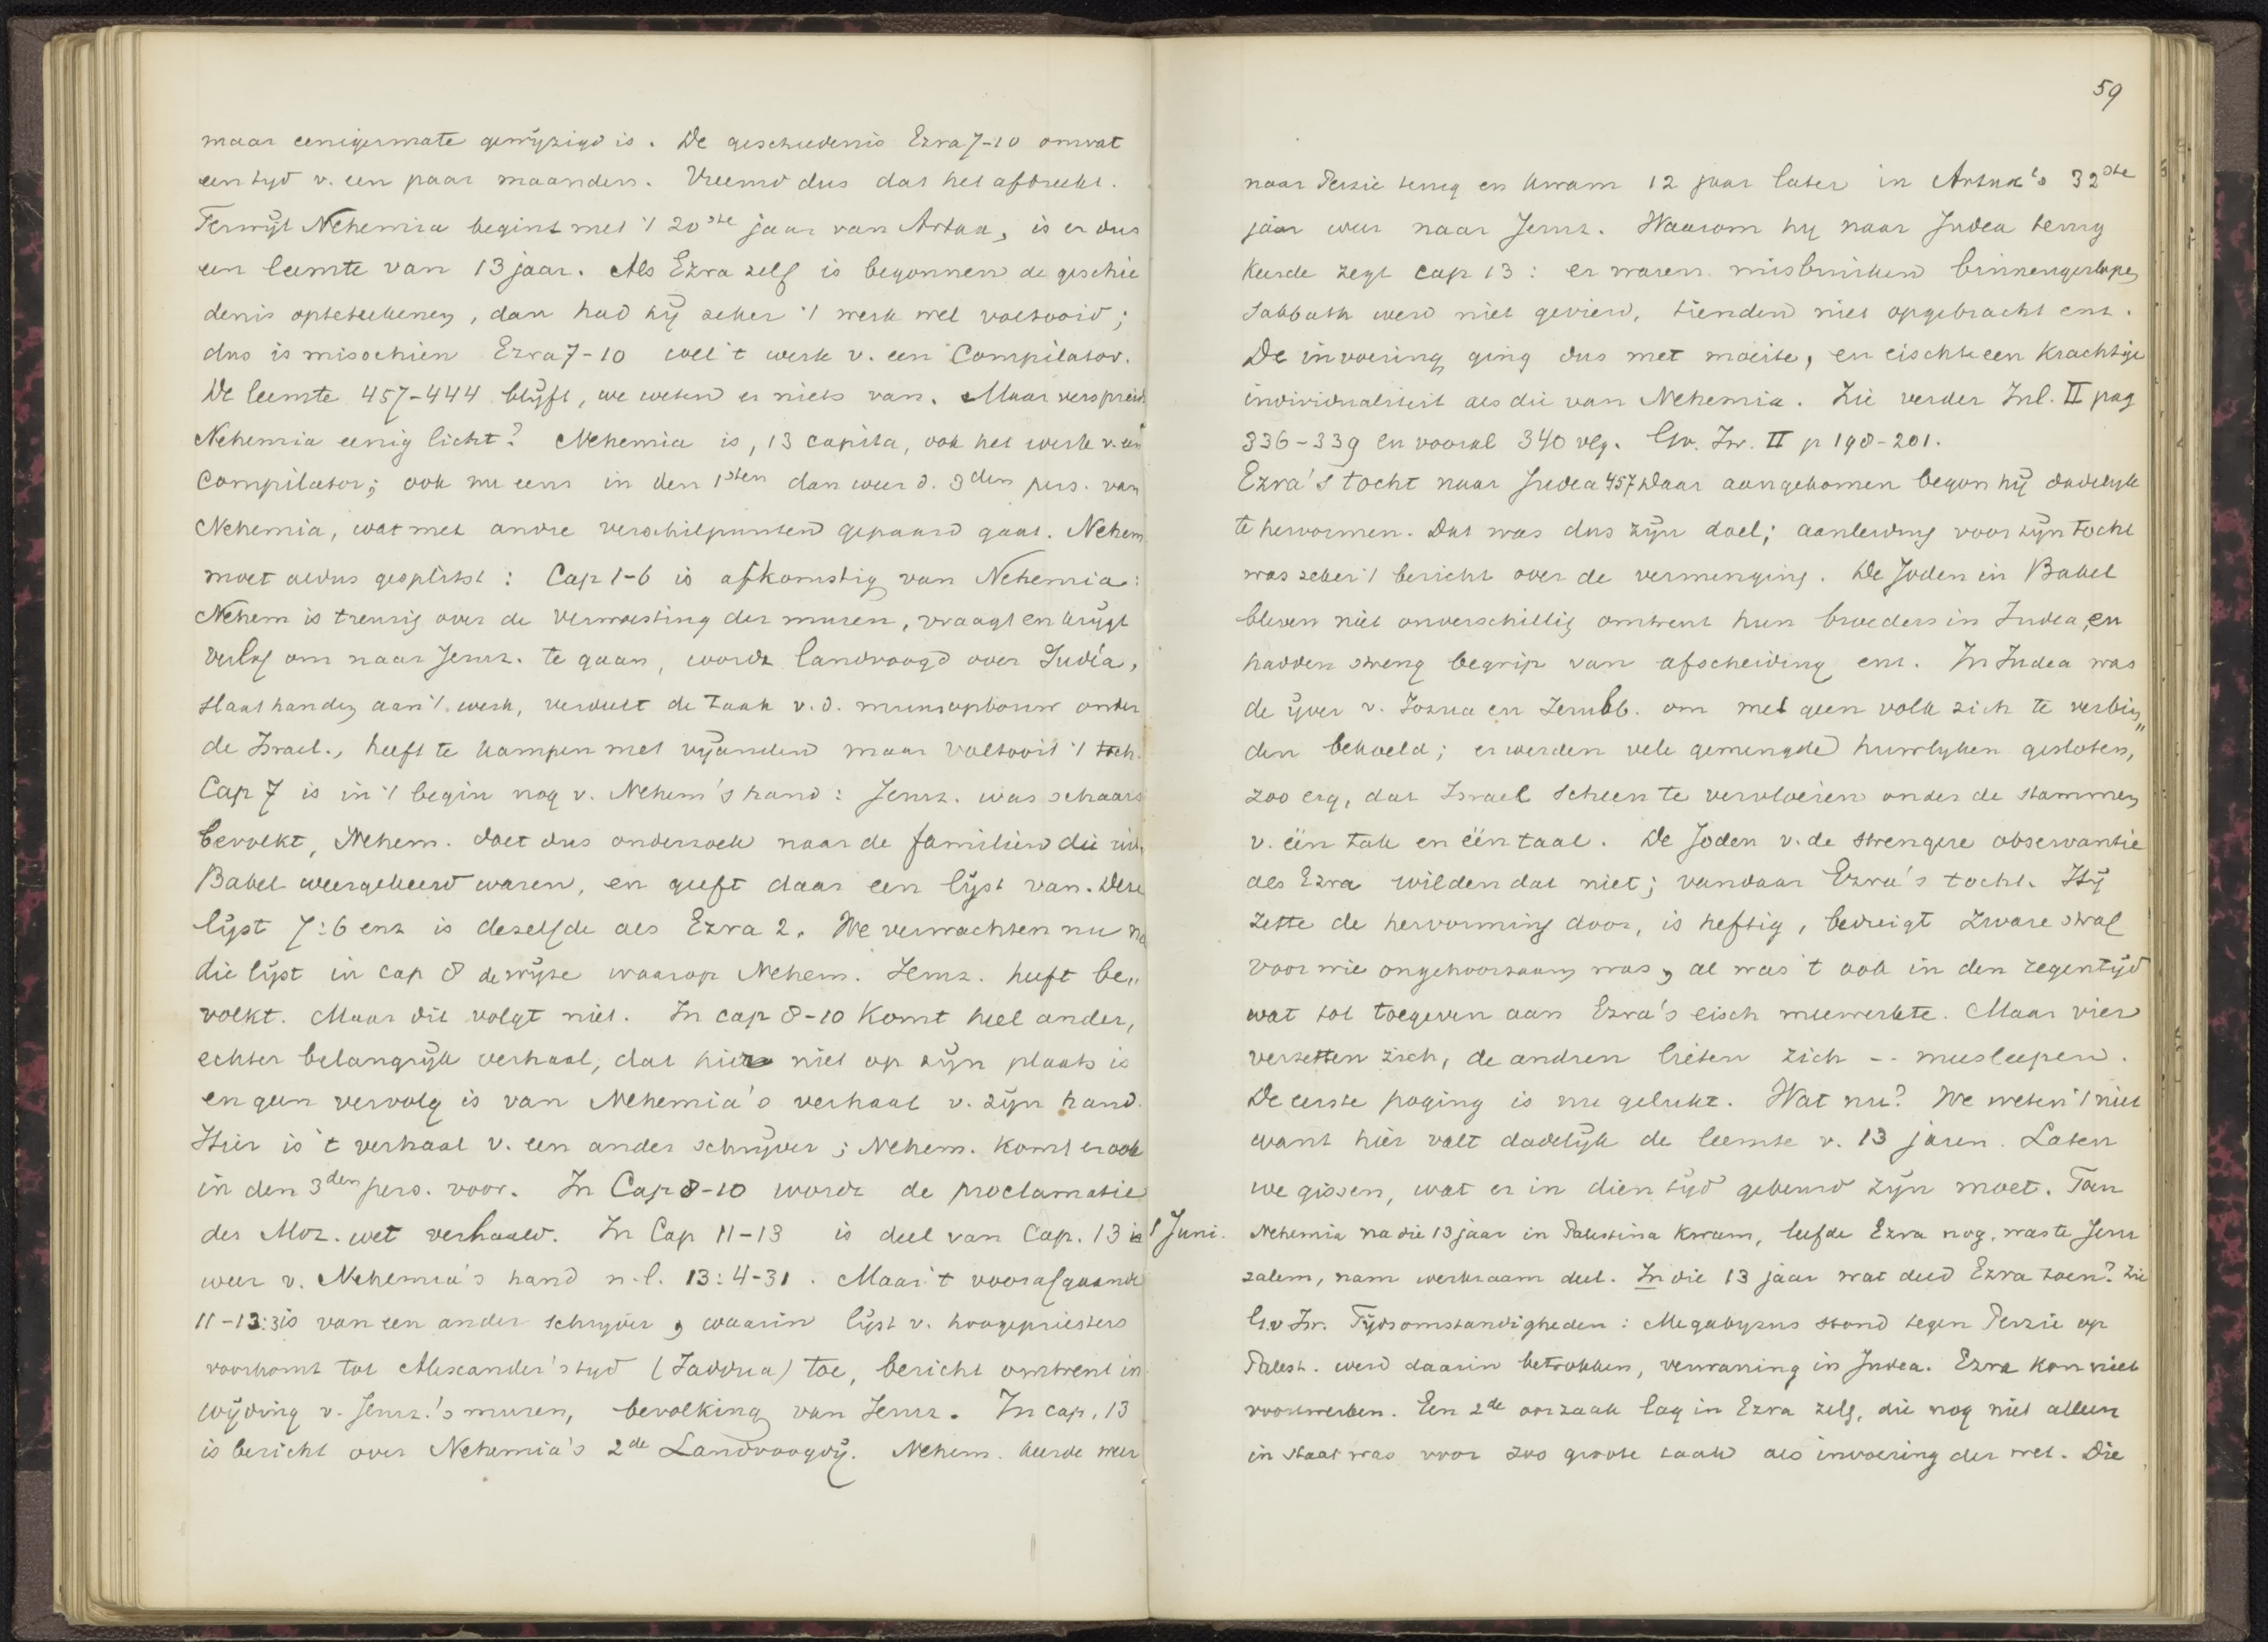 maar eenigermate gewÿzigd is. De geschiedenis Ezra 7-10 omvat
een tyd v. een paar maanden. Vreemd dus dat het afbreekt.
Terwÿl Nehemia begint met 't 20ste jaar van Artax, is er dus
een leemte van 13 jaar. Als Ezra zelf is begonnen de geschie
denis opteteekenen, dan had hÿ zeker 't werk wel voltooid;
dus is misschien Ezra 7-10 wel 't werk v. een Compilator.
De leemte 457-444 blÿft, we weten er niets van. Maar verspreidt
Nehemia eenig licht? Nehemia is, 13 capita, ook het werk v. een
Compilator; ook nu eens in den 1sten dan weer d. 3den pers. van
Nehemia, wat met andre verschilpunten gepaard gaat. Nehem
moet aldus gesplitst: Cap 1-6 is afkomstig van Nehemia:
Nehem is treurig over de verwoesting der muren, vraagt en krÿgt
verlof om naar Jeruz. te gaan, wordt landvoogd over Judéa,
slaat handen aan 't werk, verdeelt de taak v. d. muuropbouw onder
de Israel., heeft te kampen met vÿanden maar voltooit 't toch.
Cap 7 is in 't begin nog v. Nehem's hand: Jeruz. was schaars
bevolkt, Nehem. doet dus onderzoek naar de familien die uit
Babel weergekeerd waren, en geeft daar een lÿst van. Deze
lÿst 7:6 enz is dezelfde als Ezra 2. We verwachten nu na
die lÿst in cap 8 de wÿze waarop Nehem. Jeruz. heeft be„
volkt. Maar dit volgt niet. In cap 8-10 komt heel ander,
echter belangrÿk verhaal, dat hier niet op zÿn plaats is
en geen vervolg is van Nehemia's verhaal v. zÿn hand.
Hier is 't verhaal v. een ander schrÿver; Nehem. komt er ook
in den 3den pers. voor. In Cap 8-10 wordt de proclamatie
der Moz. wet verhaald. In Cap 11-13 is deel van Cap. 13 is
weer v. Nehemia's hand n.l. 13:4-31. Maar 't voorafgaande
11-13:3 is van een ander schryver, waarin lÿst v. hoogepriesters
voorkomt tot Alexander's tyd (Jaddua) toe, bericht omtrent in
wÿding v. Jeruz.'s muren, bevolking van Jeruz. In cap. 13
is bericht over Nehemia's 2de Landvoogdÿ. Nehem. keerde weer
59
naar Perzie terug en kwam 12 jaar later in Artax's 32ste
jaar weer naar Jeruz. Waarom hy naar Judea terug
keerde zegt cap 13: er waren misbruiken binnengeslopen
Sabbath werd niet gevierd, tienden niet opgebracht enz.
De invoering ging dus met moeite, en eischte een krachtige
individualiteit als die van Nehemia. Zie verder Inl. II pag
336-339 en vooral 340 vlg. Gv. Isr. II p 198-201.
Ezra's tocht naar Judea 457 Daar aangekomen begon hÿ dadelyk
te hervormen. Dat was dus zÿn doel; aanleiding voor zÿn tocht
was zeker 't bericht over de vermenging. De Joden in Babel
bleven niet onverschillig omtrent hun broeders in Judea, en
hadden streng begrip van afscheiding enz. In Judea was
de ÿver v. Jozua en Zerubb. om met geen volk zich te verbin„
den bekoeld; er werden vele gemengde huwlyken gesloten,
zoo erg, dat Israel scheen te vervloeien onder de stammen
v. één tak en één taal. De Joden v. de strengere observantie
als Ezra wilden dat niet; vandaar Ezra's tocht. Hÿ
zette de hervorming door, is heftig, bedreigt zware straf
voor wie ongehoorzaam was, al was 't ook in den regentÿd
wat tot toegeven aan Ezra's eisch meewerkte. Maar vier
verzetten zich, de andren lieten zich -- meesleepen.
De eerste poging is nu gelukt. Wat nu? We weten 't niet
want hier valt dadelÿk de leemte v. 13 jaren. Laten
we gissen, wat er in dien tÿd gebeurd zÿn moet. Toen
1 Juni. Nehemia na die 13 jaar in Palestina kwam, leefde Ezra nog, was te Jeru
zalem, nam werkzaam deel. In die 13 jaar wat deed Ezra toen? Zie
G.v Isr. Tÿdsomstandigheden: Megabyzus stond tegen Perzie op
Palest. werd daarin betrokken, verwarring in Judea. Ezra kon niet
voortwerken. Een 2de oorzaak lag in Ezra zelf, die nog niet alleen
in staat was voor zoo groote taak als invoering der wet. Die